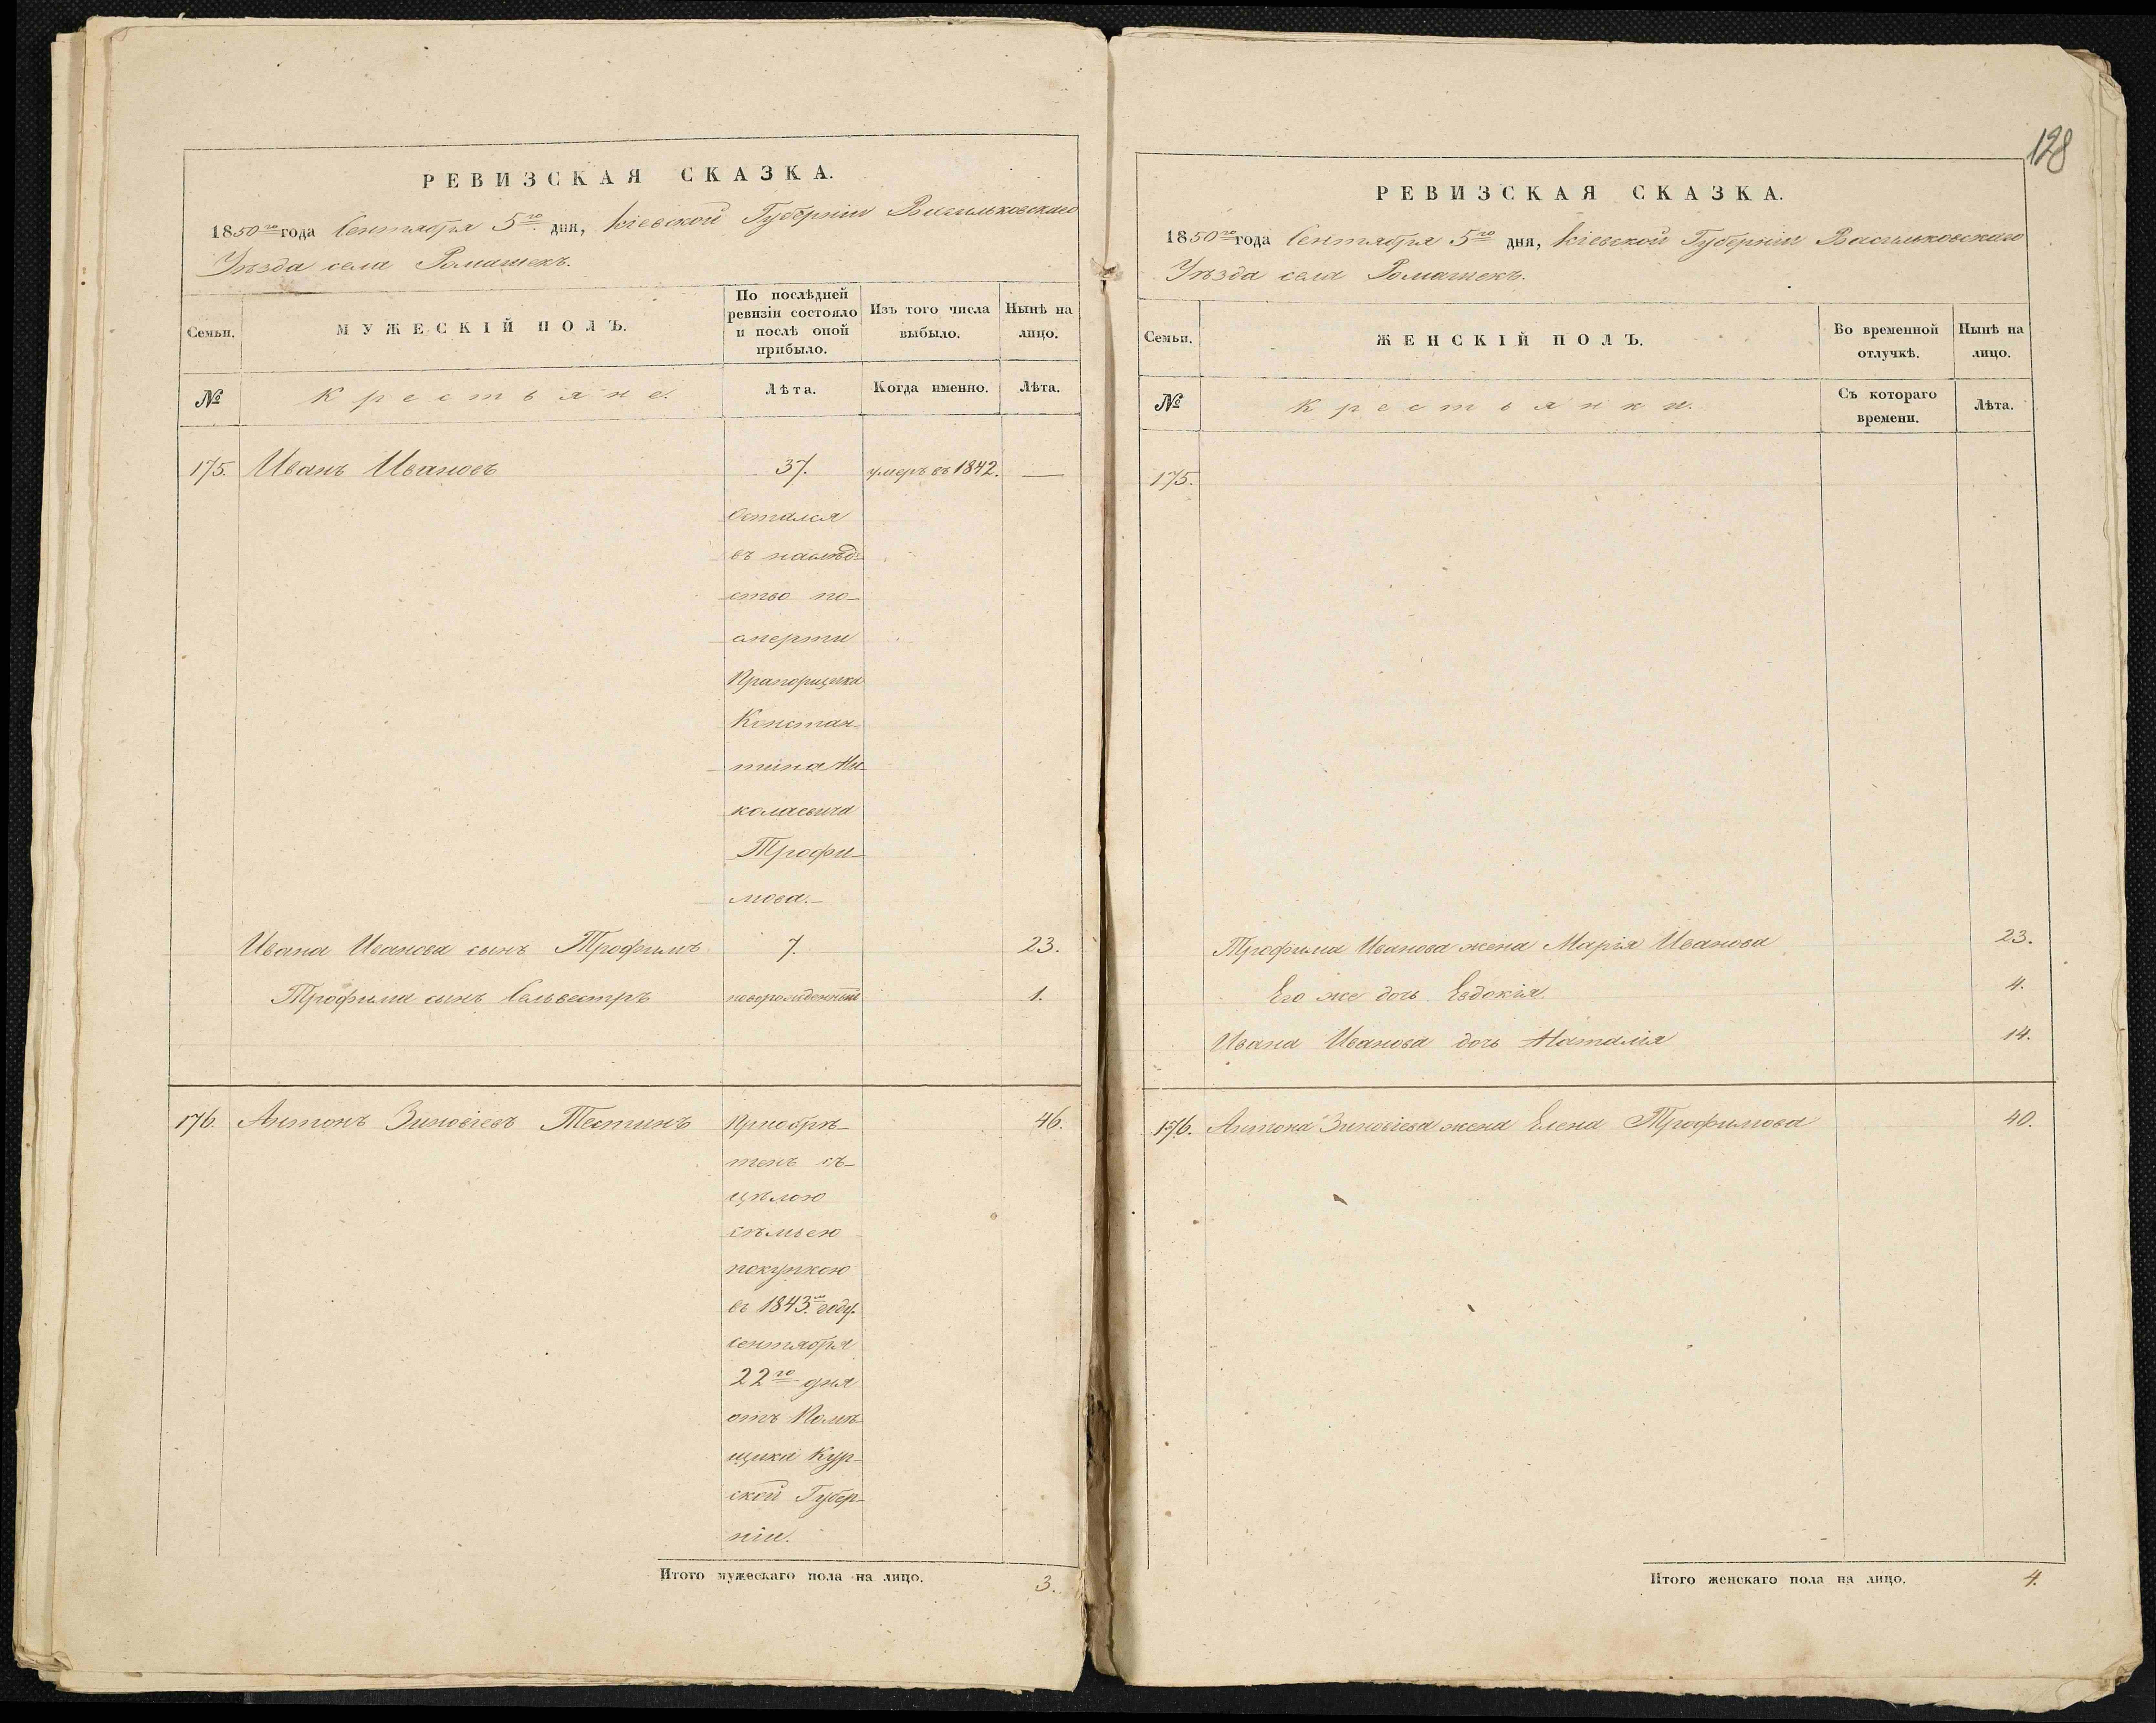 РЕВИЗСКАЯ СКАЗКА.
1850го года Сентября 5го дня, Кіевской Губерніи Васильковскаго
Уѣзда села Ромашекъ.
Семьи.
МУЖЕСКІЙ ПОЛЪ.
По послѣдней
ревизіи состояло
и послѣ оной
прибыло.
Изъ того числа
выбыло.
Нынѣ на
лицо.
№
Крестьяне.
Лѣта.
Когда именно.
Лѣта.
175. Иванъ Ивановъ 37. умеръ въ 1842. —
Остался
въ наслѣд-
ство по-
смерти
Прапорщика
Констан-
тина Ни-
колаевича
Трофи-
мова.—
Ивана Иванова сынъ Трофимъ 7. 23.
Трофима сынъ Сельвестръ новорожденный 1.
176. Антонъ Зиновіевъ Тестинъ Пріобрѣ- 46.
тенъ съ-
цѣлою
сѣмьею
покупкою
въ 1843.м году.
Сентября
22го дня
отъ Помѣ-
щика Кур-
ской Губер-
ніи.
Итого мужескаго пола на лицо. 3.
128
РЕВИЗСКАЯ СКАЗКА.
1850го года Сентября 5го дня, Кіевской Губерніи Васильковскаго
Уѣзда села Ромашекъ.
Семьи.
ЖЕНСКІЙ ПОЛЪ.
Во временной
отлучкѣ.
Нынѣ на
лицо.
№
Крестьянки.
Съ котораго
времени.
Лѣта.
175.
Трофима Иванова жена Марія Иванова 23.
Его же дочь Евдокія 4.
Ивана Иванова дочь Наталія 14.
176. Антона Зиновіева жена Елена Трофимова 40.
Итого женскаго пола на лицо. 4.